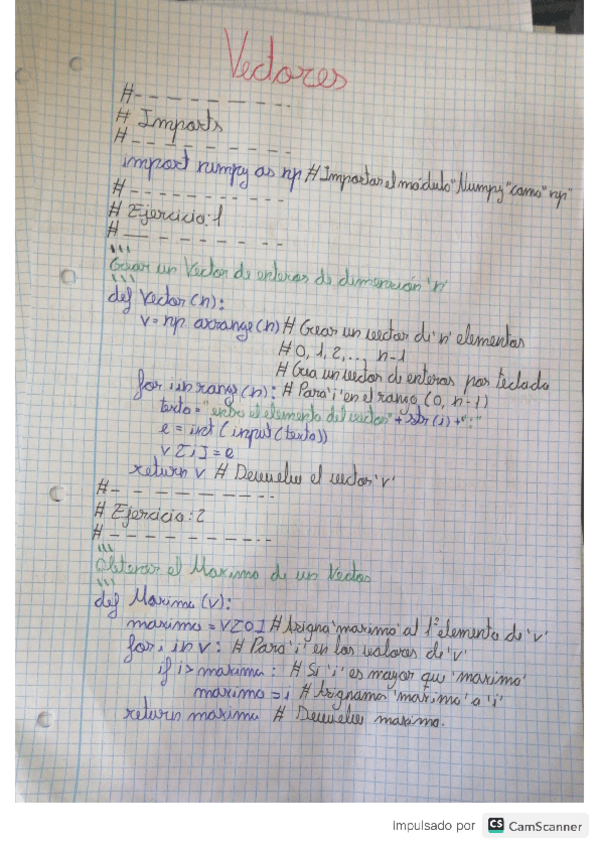 Vectores
#- - - - - - - - -
# Imports
#- - - - - - - - -
import numpy as np # Importar el módulo "Numpy" como "np"
# - - - - - - - - -
# Ejercicio:1
# - - - - - - - -
'''
Crear un Vector de enteros de dimensión 'n'
'''
def Vector (n):
v = np. arrange (n) # Crear un vector di 'n' elementos
# 0, 1, 2, ..., n-1
# Crea un vector de enteros por teclado
for i in range (n): # Para 'i' en el rango (0, n-1)
texto = "entre el elemento del vector" + str (i) + ":"
e = int (input (texto))
v[i] = e
return v # Devuelve el vector 'v'
#- - - - - - - - -
# Ejercicio:2
#- - - - - - - - -
'''
Obtener el Maximo de un Vector
'''
def Maximo (v):
maximo = V[0] # Asigna 'maximo' al 1º elemento de 'v'
for i in v: # Para 'i' en los valores de 'v'
if i > maximo: # Si 'i' es mayor que 'maximo'
maximo = i # Asignamos 'maximo' a 'i'
return maximo # Devuelve maximo.
Impulsado por CS CamScanner